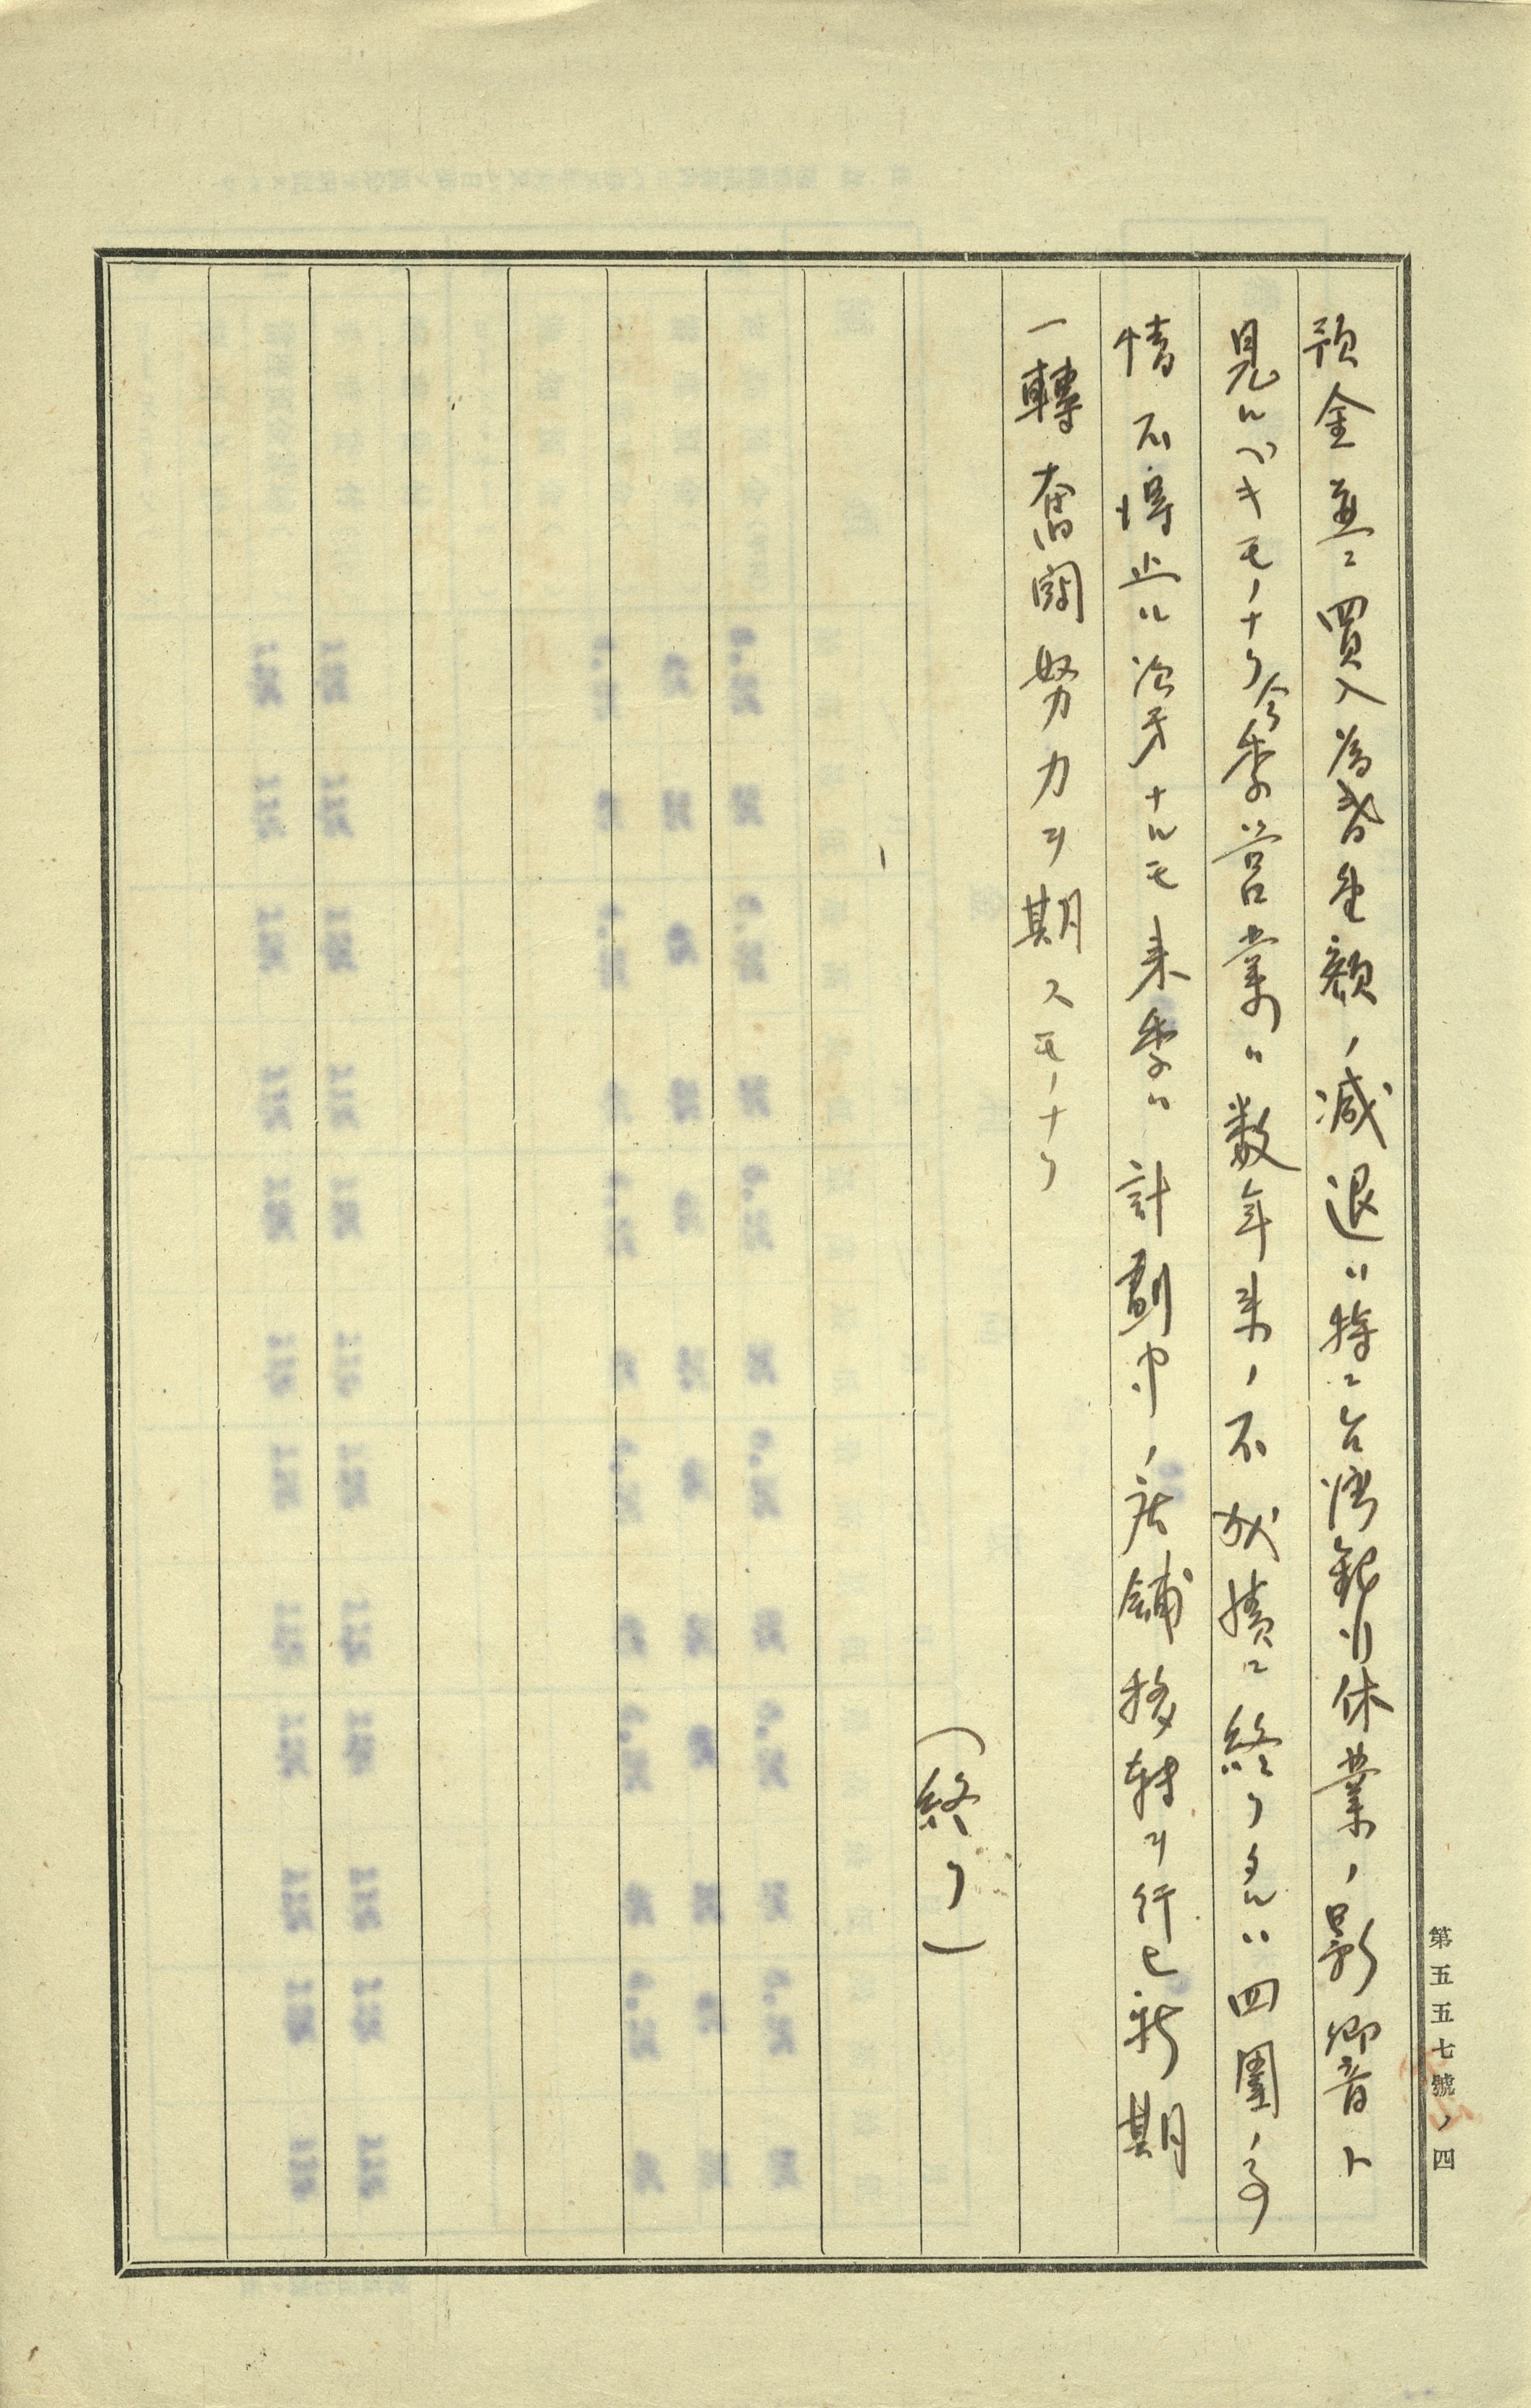 預金並ニ買入為替金額ノ減退ハ特ニ台湾銀行休業ノ影響ト
見ルベキモノナリ今季営業ハ数年来ノ不成績ニ終リタルハ四圍ノ事
情不得止ル次第ナルモ来季ハ計劃中ノ店舗移転ヲ行ヒ新期
一轉奮闘努力ヲ期スモノナリ
（終リ）
第五五七號ノ四